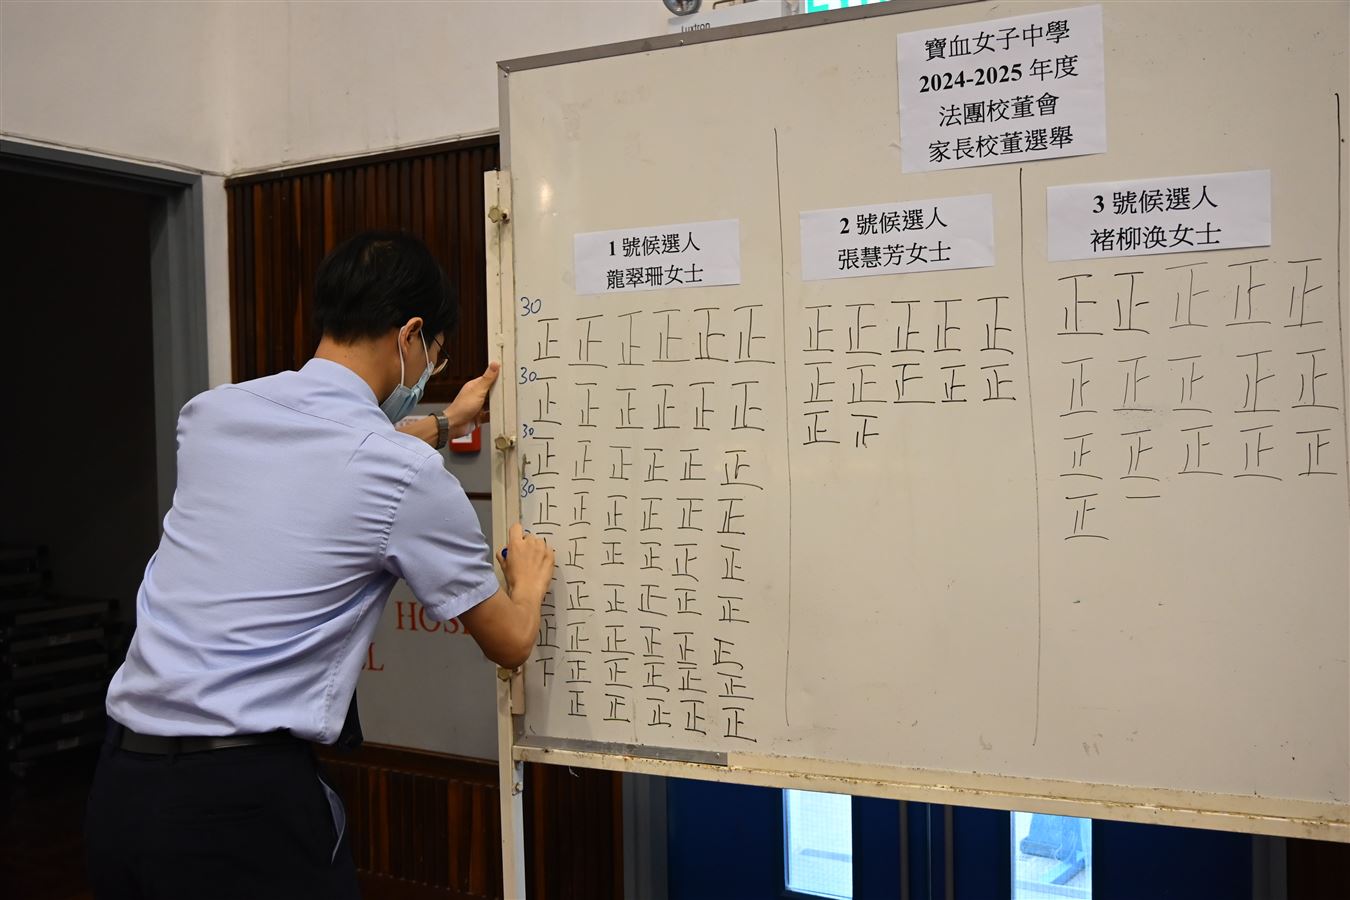 Luxtron
寶血女子中學
2024-2025 年度
法團校董會
家長校董選舉
1 號候選人
龍翠珊女士
30 正正正正正正
30 正正正正正正
30 正正正正正正
30 正正正正正正
正正正正正
正正正正正
正正正正正正
下正正正正正
正正正正正
2 號候選人
張慧芳女士
正正正正正
正正正正正
正正
3 號候選人
褚柳渙女士
正正正正正
正正正正正
正正正正正
正一